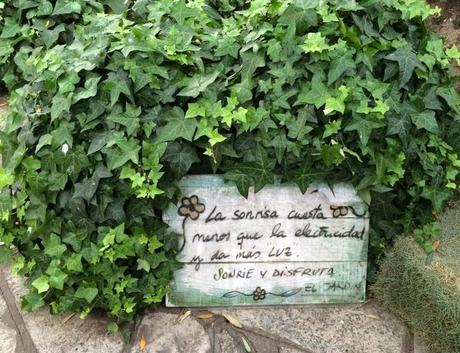 La sonrisa cuesta
menos que la electricidad
y da más "LUZ".
SONRÍE Y DISFRUTA
EL JARDÍN